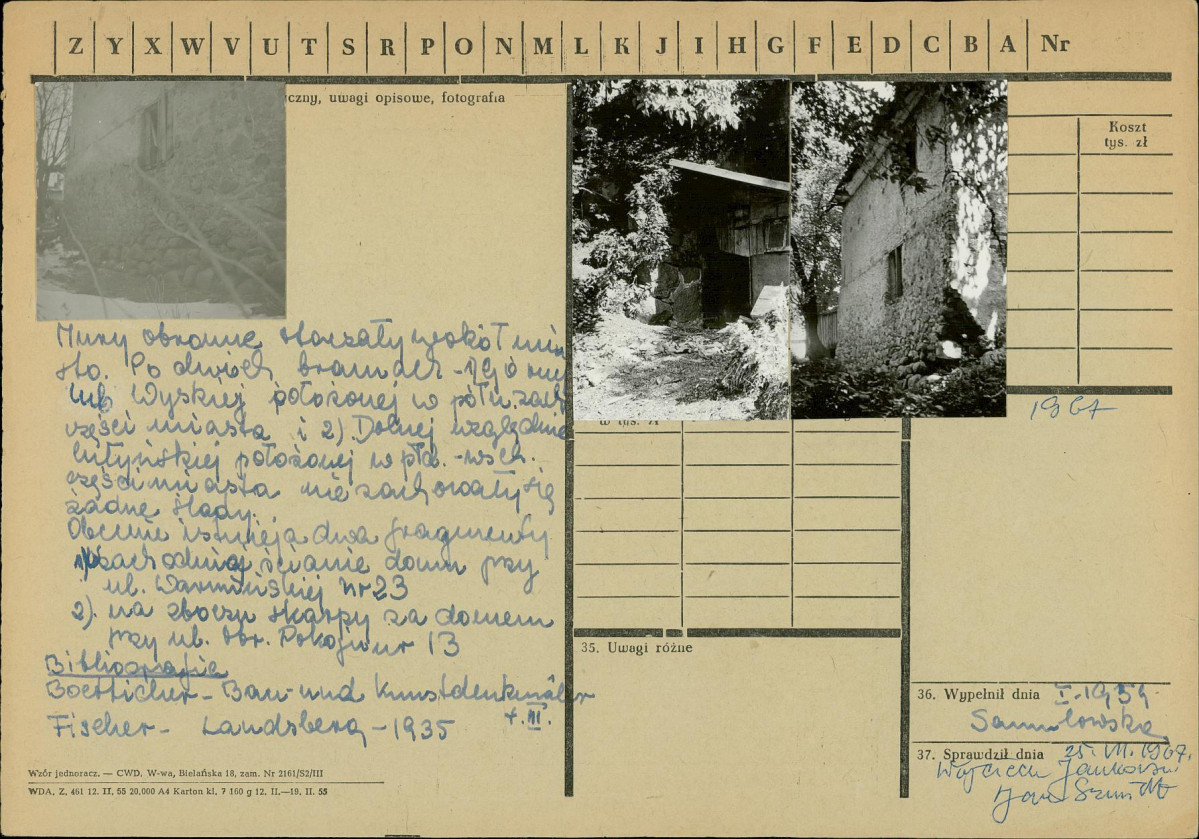 Z Y X W V U T S R P O N M L K J I H G F E D C B A Nr
czny, uwagi opisowe, fotografia
Koszt
tys. zł
1967
w tys. zł
Mury obronne otaczały wokół mia
sto. Po dwóch bramach - 1) Górnej
lub Wysokiej położonej w półn. zach
części miasta i 2). Dolnej względnie
położonej w płd. - wsch.
części miasta nie zachowały się
żadne ślady.
Obecnie istnieją dwa fragmenty
1) zachodniej ścianie domu przy
ul. Warmińskiej nr 23
2). na zboczu skarpy za domem
przy ul. Obr. Pokoju nr 13
Bibliografia
Boetticher - Bau- und Kunstdenkmäler
t. III.
Fischer - Landsberg - 1935
35. Uwagi różne
36. Wypełnił dnia I. 1959
37. Sprawdził dnia 25. VII. 1967.
Wojciech Jankowski
Jan Szmidt
Wzór jednoraz. — CWD, W-wa, Bielańska 18, zam. Nr 2161/S2/III
WDA. Z. 461 12. II. 55 20.000 A4 Karton kl. 7 160 g 12. II.—19. II. 55